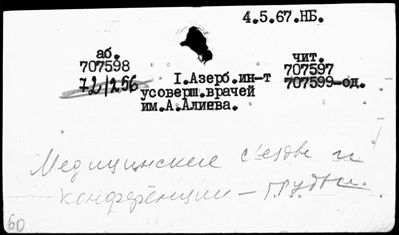 4.5.67.НБ.
аб.
707598
72/256
I.Азерб.ин-т
усоверш.врачей
им.А.Алиева.
чит.
707597
707599-од.
Медицинские съезды и
конференции – труды.
60